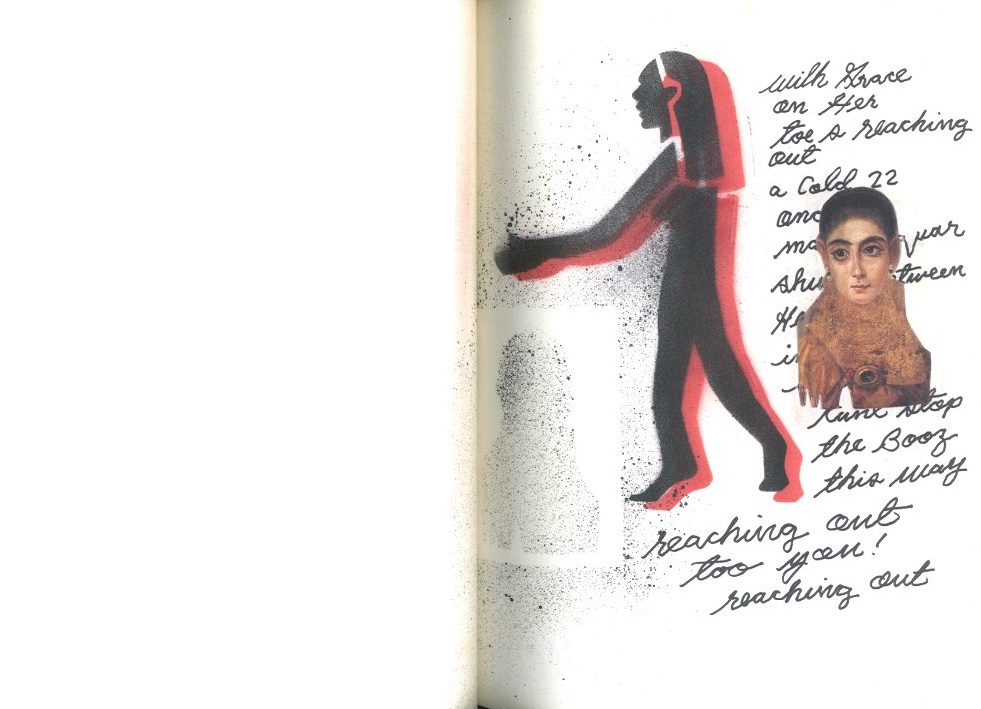 with Grace
on Her
toe s reaching
out
a Cold 22
and
ma quar
shu tween
He
i
stop
the Booz
this way
reaching out
too you!
reaching out